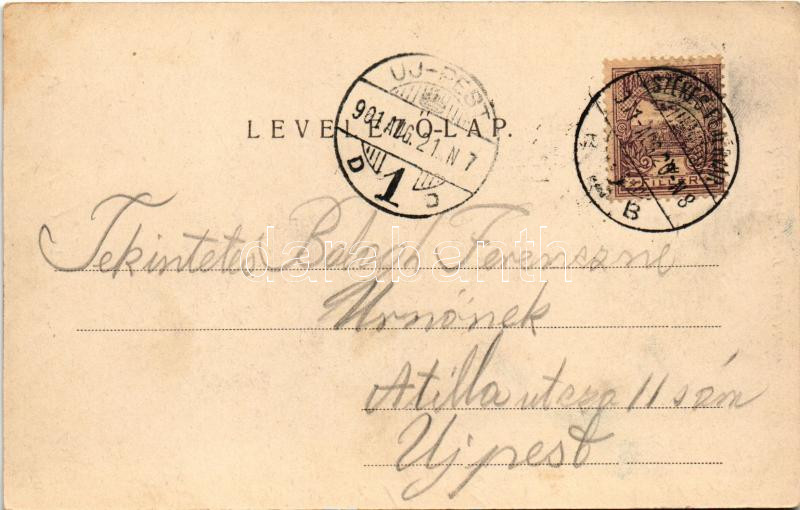 LEVELEZŐ-LAP.
UJ-PEST
901 AUG. 21. N 7
D 1 D
FILLÉR
B
Tekintetes Balogh Ferenczné
Urnőnek
Atilla utcza 11 szám
Ujpest
darabanth